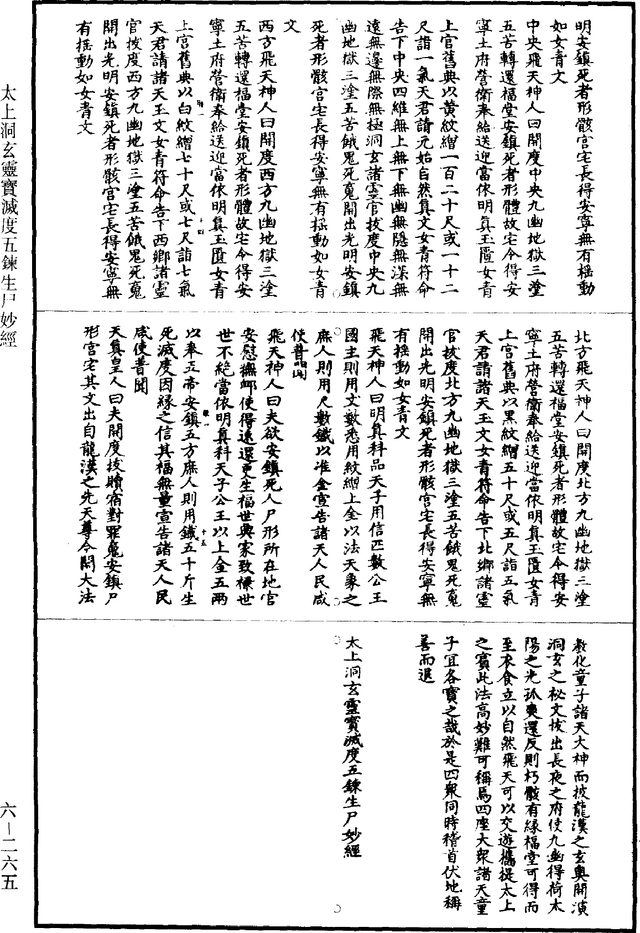 明安鎮死者形骸宮宅長得安寧無有揺動
如女青文
中央飛天神人曰開度中央九幽地獄三塗
五苦轉還福堂安鎮死者形體故宅令得安
寧土府營衛奉給送迎當依明真玉匱女青
上官舊典以黃紋繒一百二十尺或一十二
尺詣一氣天君請元始自然真文女青符命
告下中央四維無上無下無幽無隱無深無
遠無邊無際無極洞玄諸靈官拔度中央九
幽地獄三塗五苦餓鬼死魂開出光明安鎮
死者形骸宮宅長得安寧無有揺動如女青
文
西方飛天神人曰開度西方九幽地獄三塗
五苦轉還福堂安鎮死者形體故宅令得安
寧土府營衛奉給送迎當依明真玉匱女青
上宮舊典以白紋繒七十尺或七尺詣七氣
天君請諸天玉文女青符命告下西鄉諸靈
官拔度西方九幽地獄三塗五苦餓鬼死魂
開出光明安鎮死者形骸宮宅長得安寧無
有揺動如女青文
北方飛天神人曰開度北方九幽地獄三塗
五苦轉還福堂安鎮死者形體故宅令得安
寧土府營衛奉給送迎當依明真玉匱女青
上官舊典以黑紋繒五十尺或五尺詣五氣
天君請諸天玉文女青符命告下北鄉諸靈
官拔度北方九幽地獄三塗五苦餓鬼死魂
開出光明安鎮死者形骸宮宅長得安寧無
有揺動如女青文
飛天神人曰明真科品天子用信匹數公王
國主則用文數悉用紋繒上金以法天象之
庶人則用尺數鐵以准金宣告諸天人民咸
使普聞
飛天神人曰夫欲安鎮死人尸形所在地官
安慰撫卹使得速還更生福世與家致福世
世不絕當依明真科天子公王以上金五兩
以奉五帝安鎮五方庶人則用鐵五十斤生
死滅度因緣之信其福無量宣告諸天人民
咸使普聞
天真皇人曰夫開度拔贖宿對罪魂安鎮尸
形宮宅其文出自龍漢之先天尊今開大法
教化童子諸天大神而披龍漢之玄奥開演
洞玄之秘文拔出長夜之府使九幽得荷太
陽之光孤爽還反則朽骸有緣福堂可得而
至衣食立以自然飛天可以交遊攜提太上
之賓此法高妙難可稱焉四座大衆諸天童
子宜各寶之哉於是四衆同時稽首伏地稱
善而退
太上洞玄靈寶滅度五鍊生尸妙經
太上洞玄靈寶滅度五鍊生尸妙經
六—二六五